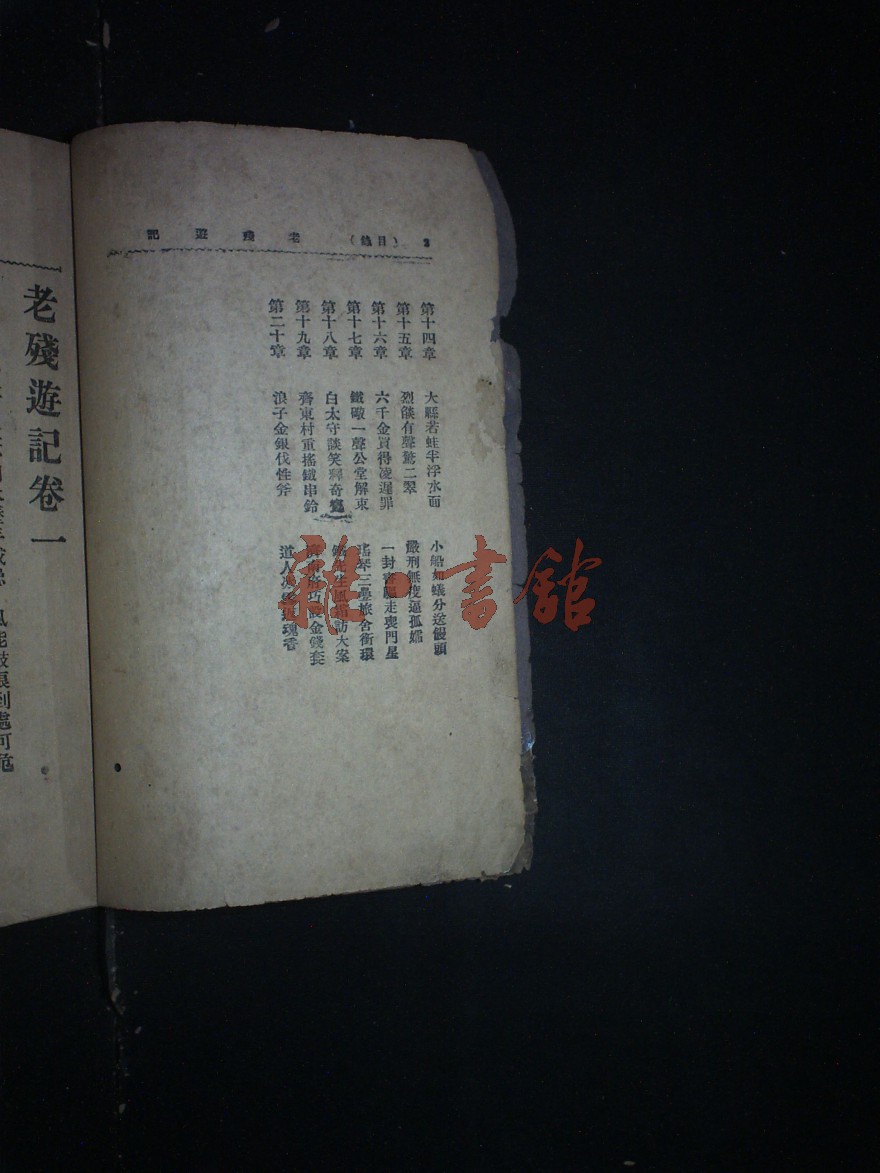 2 （目錄） 老殘遊記
第十四章 大縣若蛙半浮水面 小船如蟻分送饅頭
第十五章 烈燄有聲驚二翠 嚴刑無度逼孤孀
第十六章 六千金買得凌遲罪 一封書驅走喪門星
第十七章 鐵礮一聲公堂解束 瑤琴三疊旅舍銜環
第十八章 白太守談笑釋奇寃 鐵先生風霜訪大案
第十九章 齊東村重搖鐵串鈴 濟南府巧設金錢套
第二十章 浪子金銀伐性斧 道人冰雪返魂香
老殘遊記卷一
雜·書館